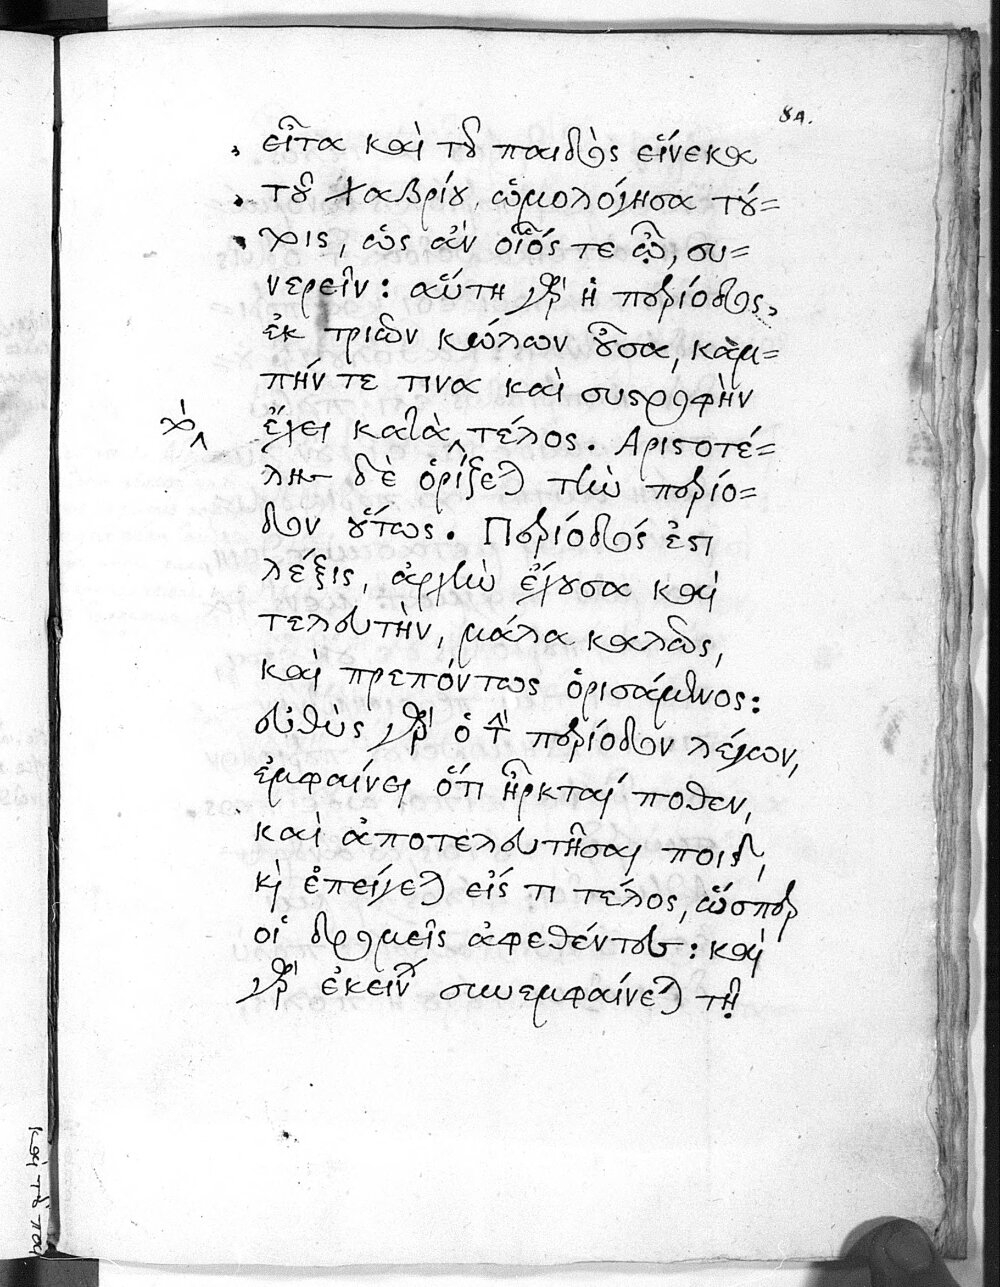 84.
εἶτα καὶ τοῦ παιδὸς εἵνεκα
τοῦ Χαβρίου, ὡμολόγησα τού=
τοις, ὡς ἂν οἷός τε ὦ, συ=
νερεῖν: αὕτη γὰρ ἡ περίοδος,
ἐκ τριῶν κώλων οὖσα, καμ=
πήν τε τινα καὶ συστροφὴν
ἔχει κατὰ τέλος. Ἀριστοτέ=
λης δὲ ὁρίζει τὴν περίο=
δον οὕτως. Περίοδός ἐστι
λέξις, ἀρχὴν ἔχουσα καὶ
τελευτήν, μάλα καλῶς,
καὶ πρεπόντως ὁρισάμενος:
εὐθὺς γὰρ ὁ τὴν περίοδον λέγων,
ἐμφαίνει ὅτι ἦρκταί ποθεν,
καὶ ἀποτελευτῆσαι ποι,
κὶ ἐπείγει εἴς τι τέλος, ὥσπερ
οἱ δρομεῖς ἀφεθέντες: καὶ
γὰρ ἐκείνων συνεμφαίνει τῇ